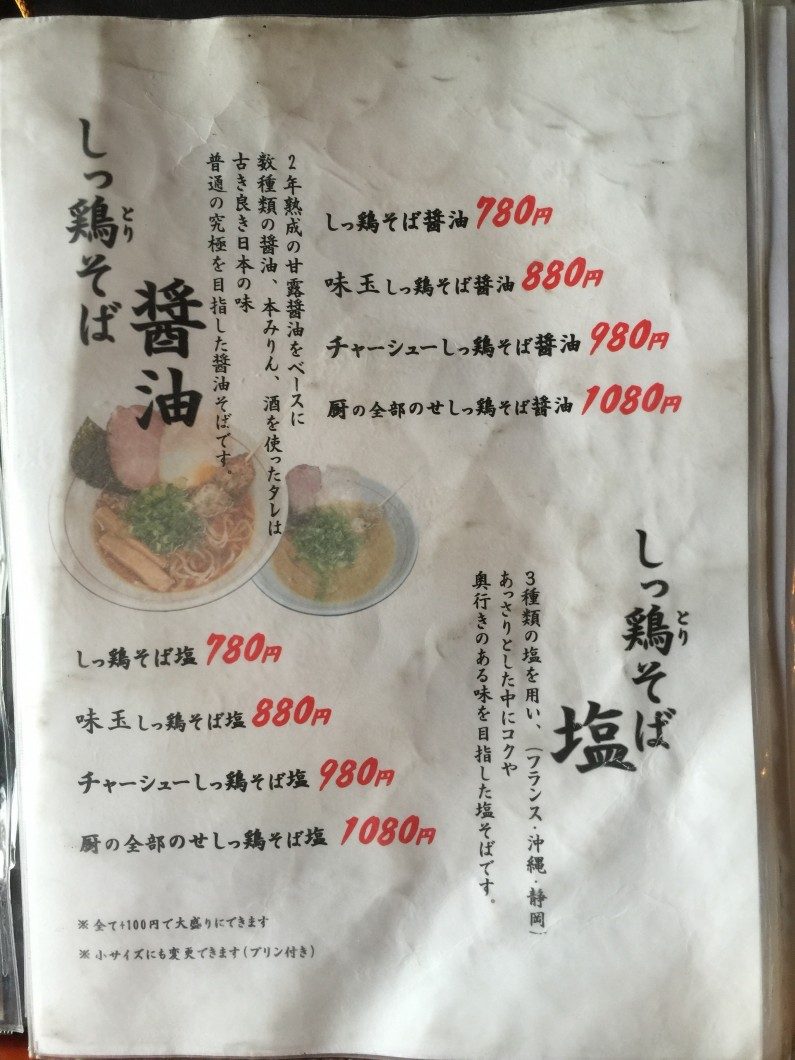 しっ鶏そば
とり
醤油
2年熟成の甘露醤油をベースに
数種類の醤油、本みりん、酒を使ったタレは
古き良き日本の味
普通の究極を目指した醤油そばです。
しっ鶏そば醤油 780円
味玉しっ鶏そば醤油 880円
チャーシューしっ鶏そば醤油 980円
厨の全部のせしっ鶏そば醤油 1080円
しっ鶏そば
とり
塩
3種類の塩を用い、(フランス・沖縄・静岡)
あっさりとした中にコクや
奥行きのある味を目指した塩そばです。
しっ鶏そば塩 780円
味玉しっ鶏そば塩 880円
チャーシューしっ鶏そば塩 980円
厨の全部のせしっ鶏そば塩 1080円
※全て+100円で大盛りにできます
※小サイズにも変更できます(プリン付き)